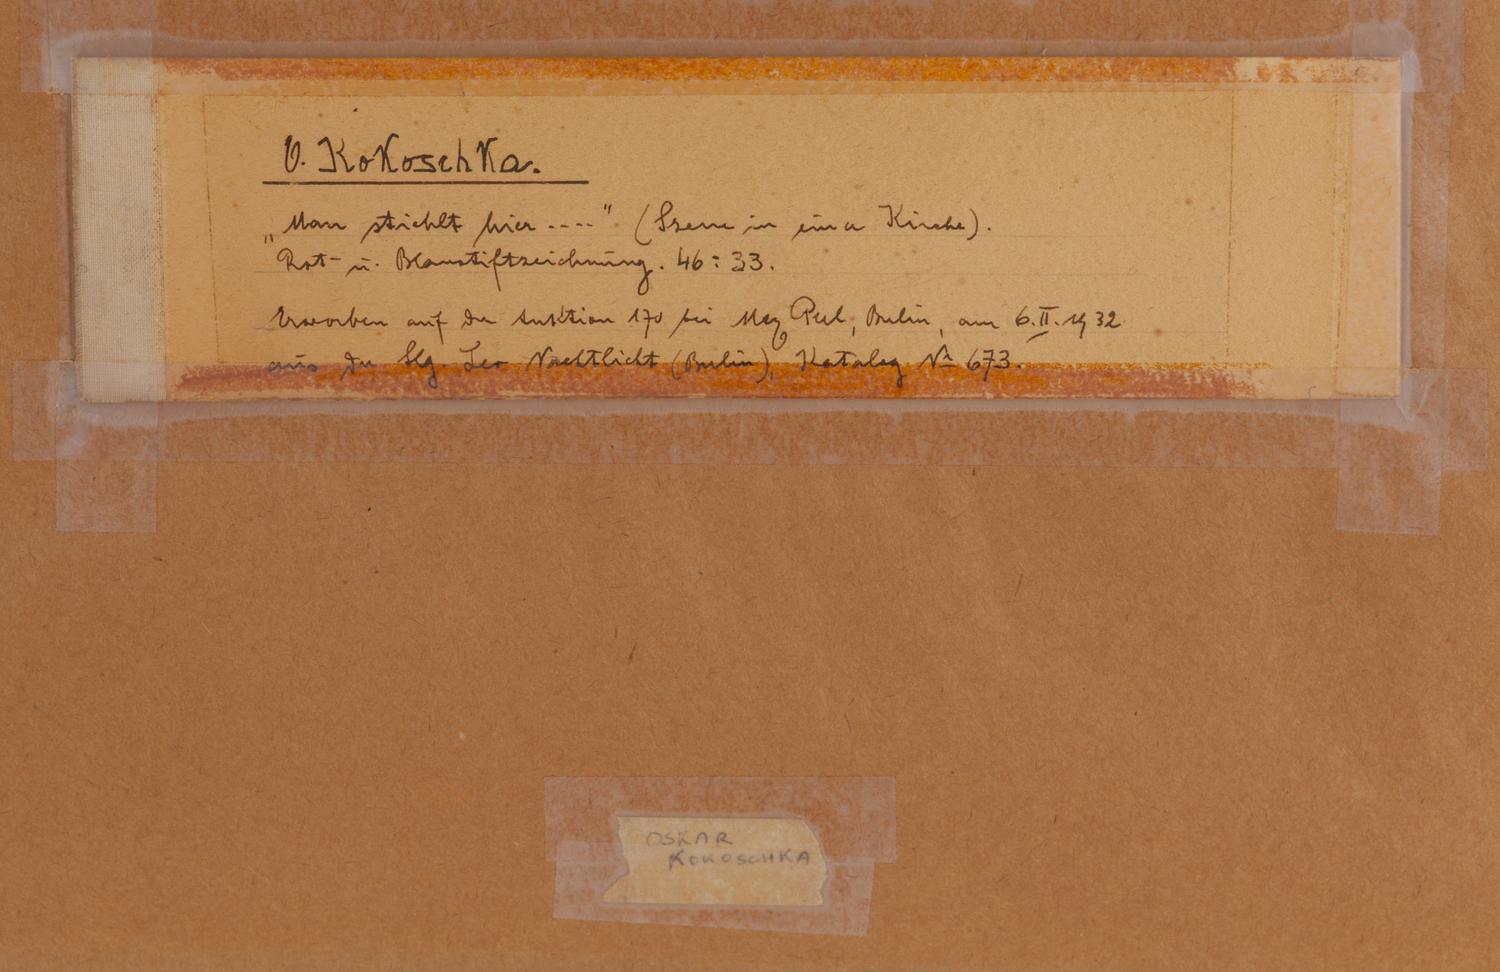 O. Kokoschka.
„Man stiehlt hier ----" (Szene in einer Kirche).
Rot- u. Blaustiftzeichnung. 46:33.
Erworben auf der Auktion 170 bei Max Perl, Berlin, am 6.II.1932
aus der Slg. Leo Nachtlicht (Berlin), Katalog No 673.
OSKAR
KOKOSCHKA